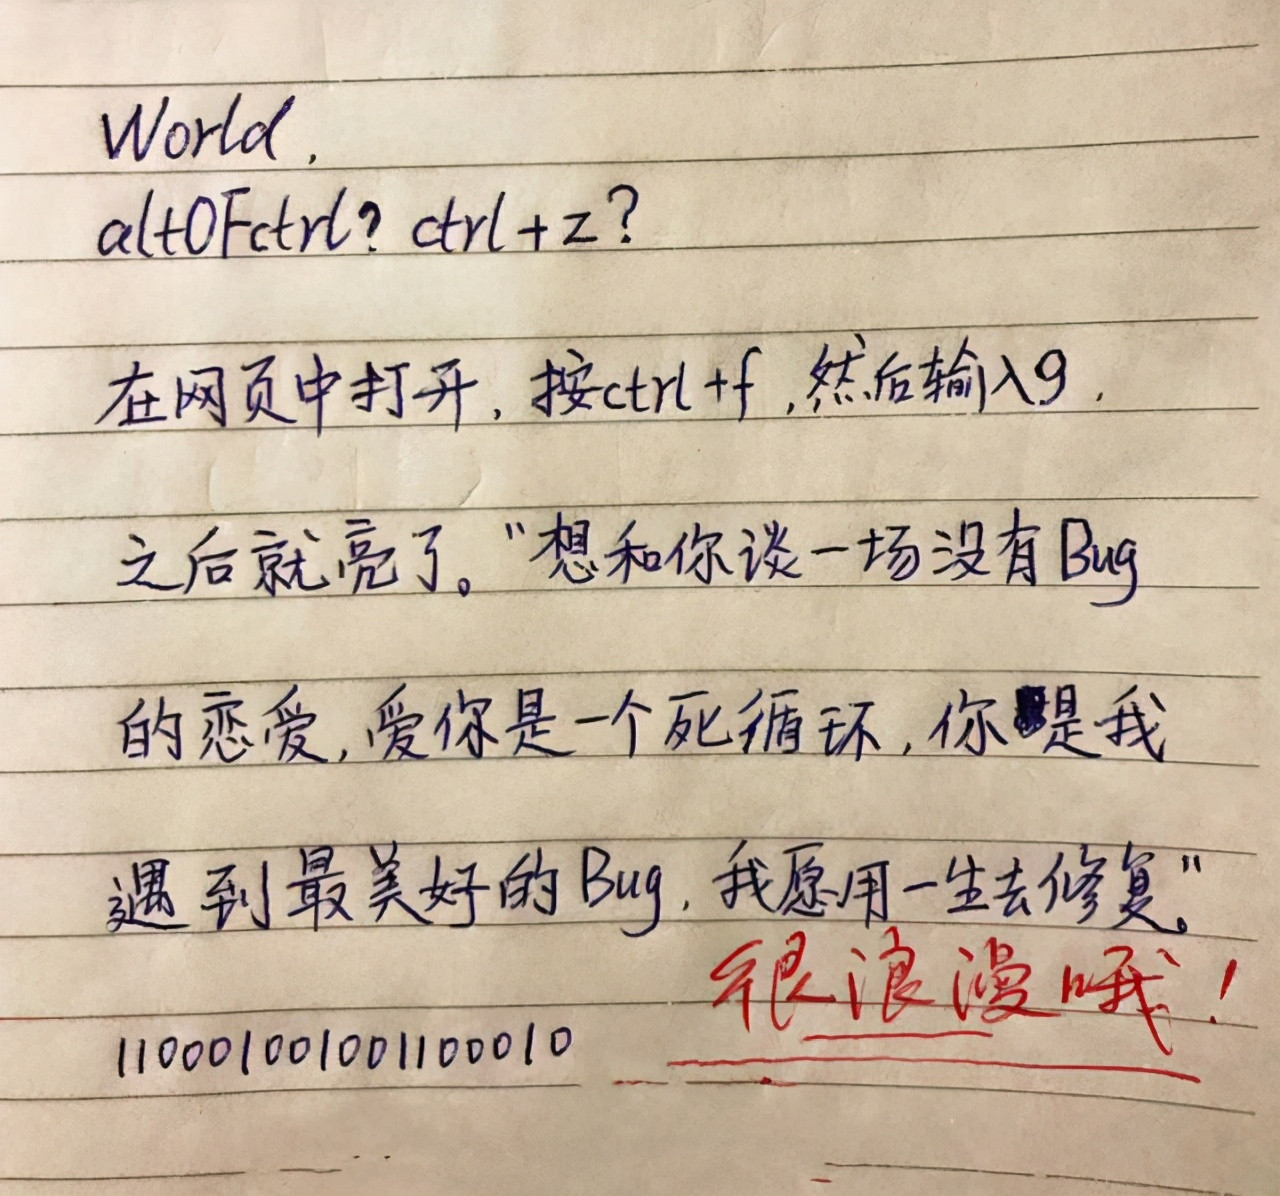 World,
altOFctrl? ctrl+z?
在网页中打开,按ctrl+f,然后输入9,
之后就亮了。"想和你谈一场没有Bug
的恋爱,爱你是一个死循环,你是我
遇到最美好的Bug,我愿用一生去修复。"
很浪漫哦!
110001001001100010